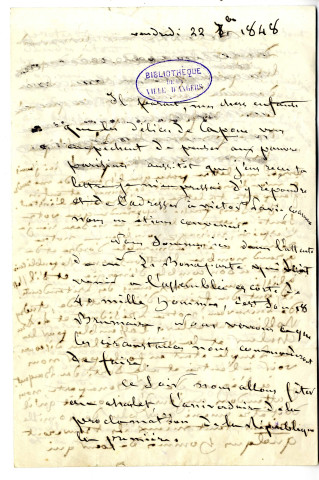 vendredi 22 7bre 1848
BIBLIOTHÈQUE
DE LA
VILLE D'ANGERS
Il parait, mes chers enfants
que les délices de Capoue vous
empêchent de penser aux pauvres
parisiens aussitôt que j'eus reçu ta
lettre je m'empressai d'y répondre
et de l'adresser à victor Pavie comme
nous en étions convenus.
Nous sommes ici dans l'attente
de Mr Ls Bonaparte qui doit
venir à l'assemblée escorté de
40 mille hommes, c'est le 18
Brumaire, nous verrons ce que
les circonstances nous commanderont
de faire.
Ce soir nous allons fêter
au chalet l'anniversaire de la
proclamation de la République
la première.